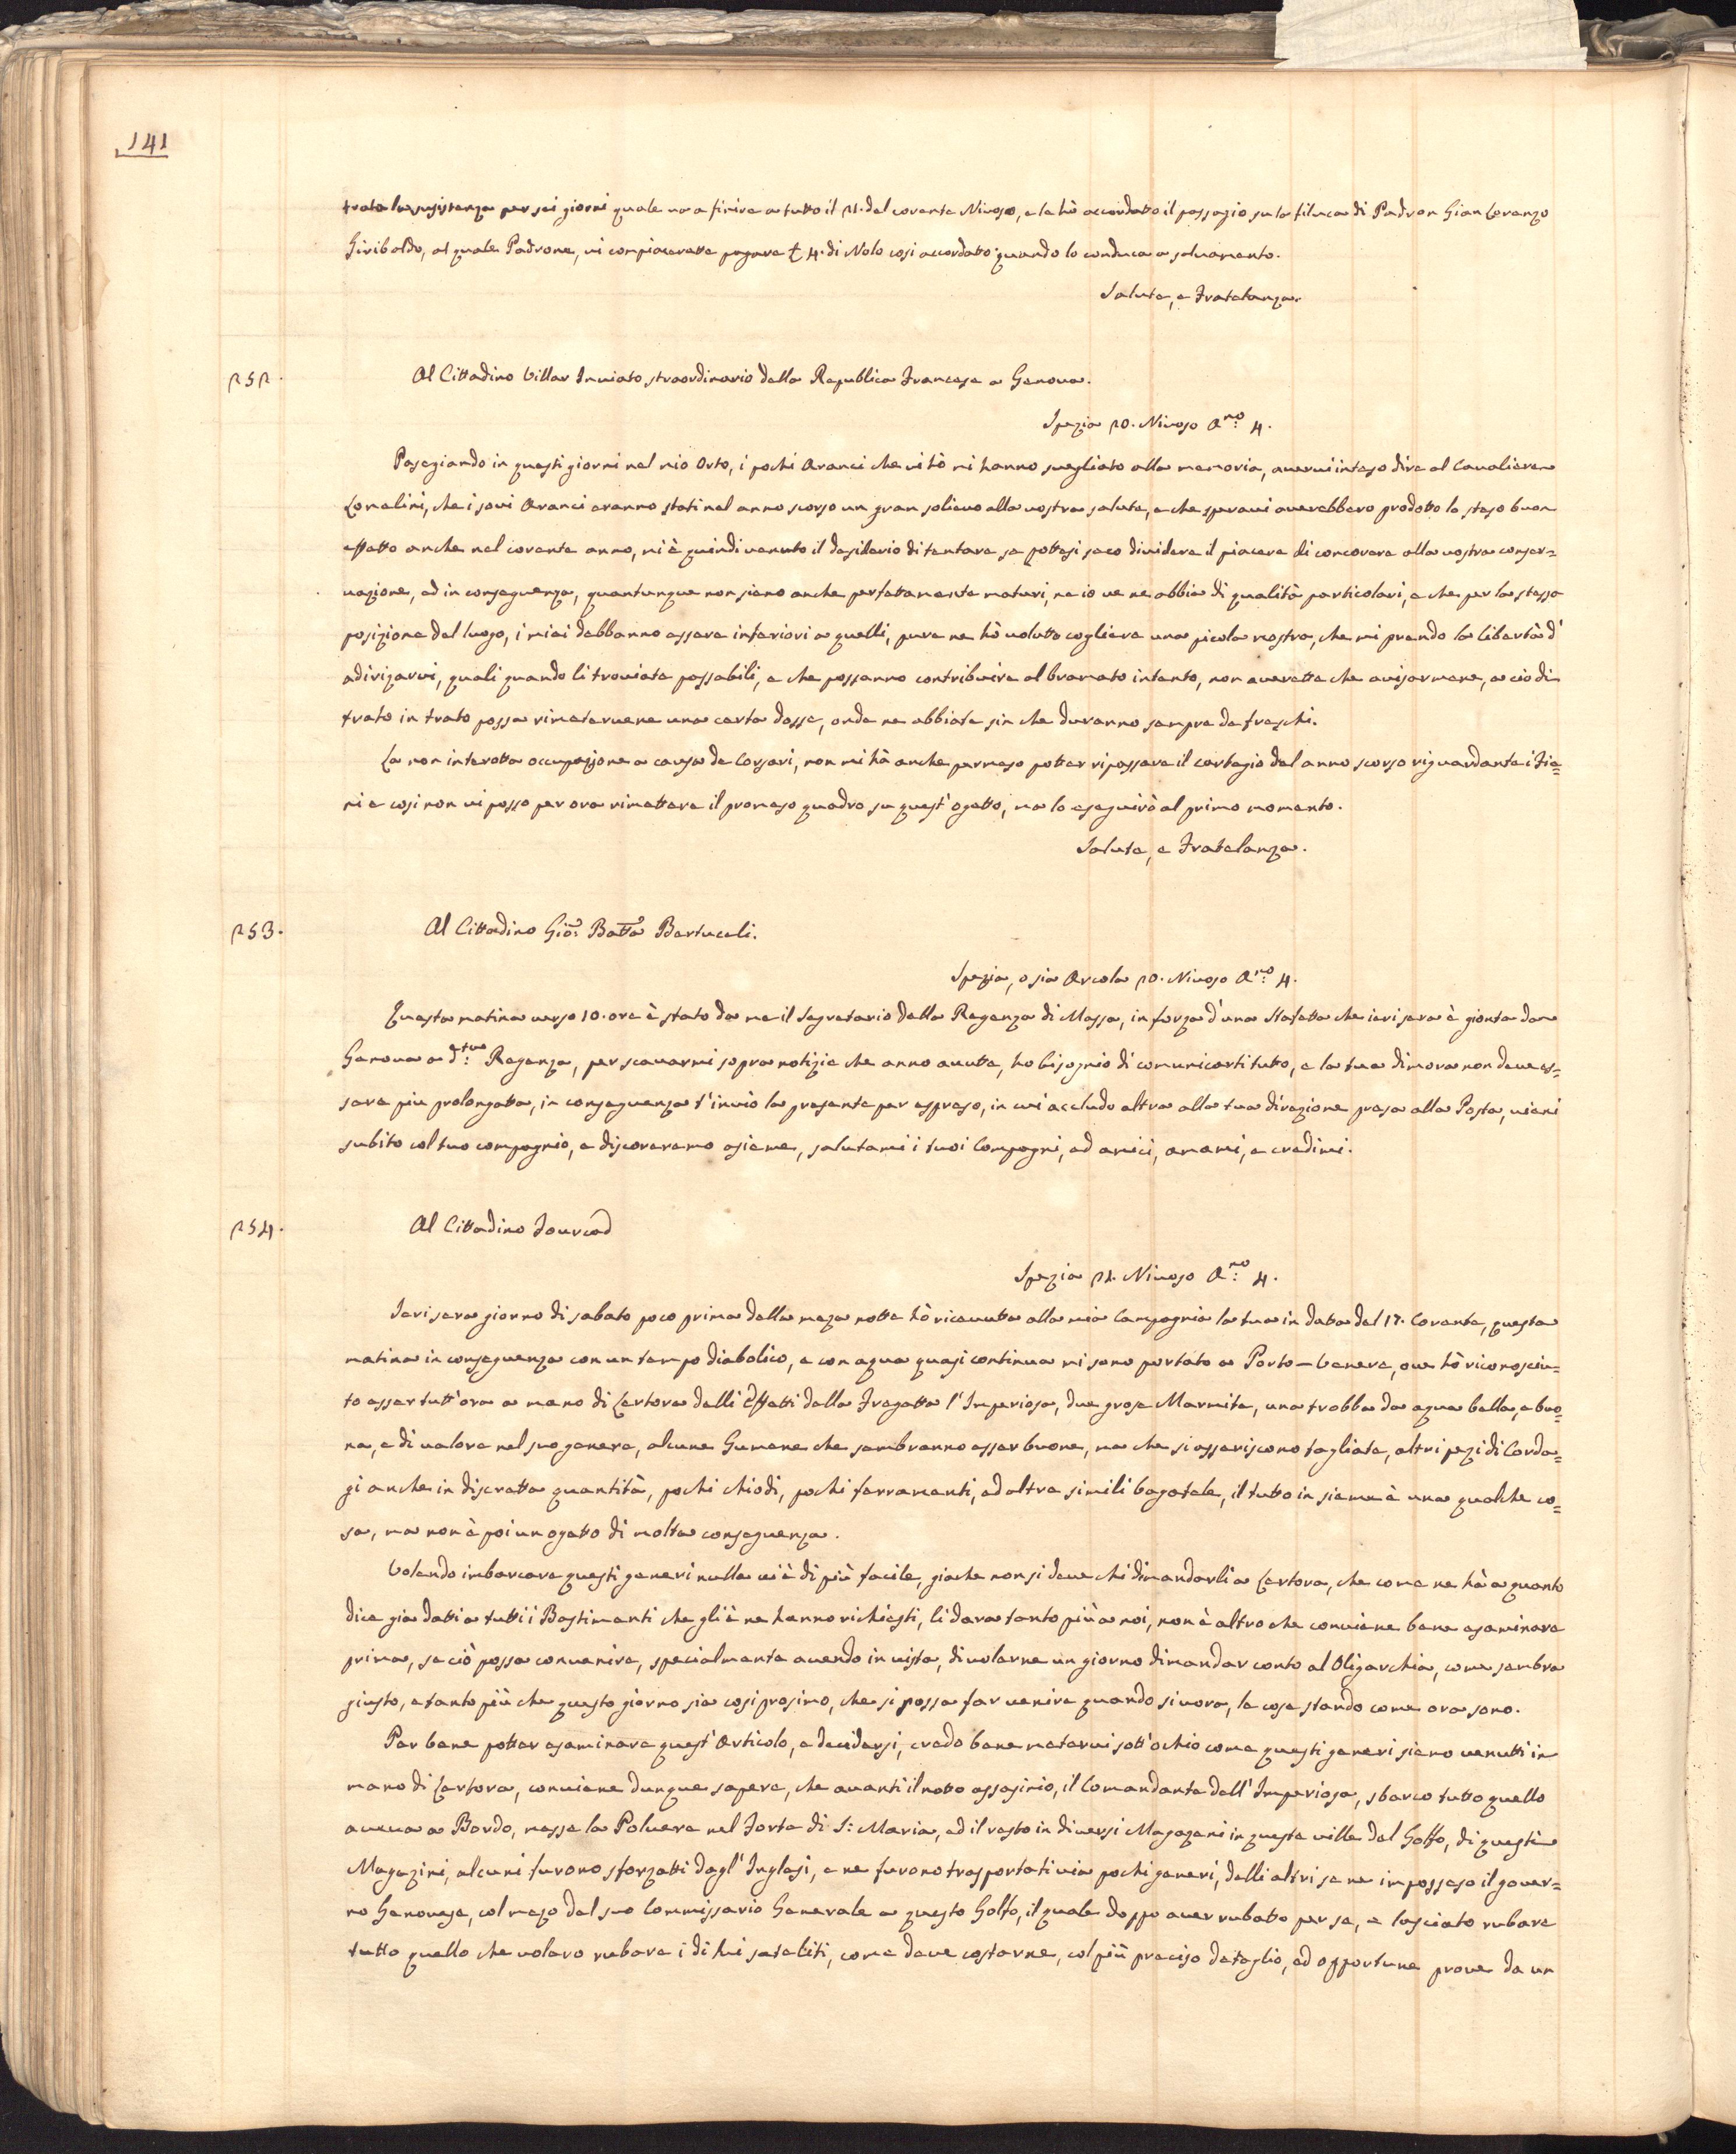 141
trato la susistenza per sei giorni quale va a finire a tutto il 21. del corente Nivoso, e le hò accordatto il passagio su la filuca di Padron Gian Lorenzo
Giribaldo, al quale Padrone, vi compiacerette pagare £ 4. di Nolo cosi accordatto quando lo conduca a salvamento.
Salute, e Fratelanza.
252. Al Cittadino Villar Inviato straordinario della Republica Francese a Genova.
Spezia 20. Nivoso A.no 4.
Pasegiando in questi giorni nel mio Orto, i pochi Aranci che vi hò mi hanno svegliato alla memoria, avervi inteso dire al Cavaliere
Lomelini, che i suoi Aranci eranno stati nel anno scorso un gran solievo alla vostra salute, e che speravi averebbero prodotto lo steso buon
effetto anche nel corente anno, mi è quindi venuto il desiderio di tentare se pottesi seco dividere il piacere di concorere alla vostra conser=
vazione, ed in conseguenza, quantunque non siano anche perfettamente maturi, ne io ve ne abbia di qualità particolari, e che per la stessa
posizione del luogo, i miei debbanno essere inferiori a quelli, pure ne hò volutto cogliere una picola mostra, che mi prendo la libertà d'
adirizarvi, quali quando li troviate passabili, e che possanno contribuire al bramato intento, non averette che avisarmene, a ciò di
trato in trato possa rimetervene una certa dosse, onde ne abbiate sin che duranno sempre de freschi.
La non interotta occupazione a causa de Corsari, non mi hà anche permeso potter ripassare il cartegio del anno scorso riguardante i Fie=
ni e cosi non vi posso per ora rimettere il promeso quadro su quest' ogetto, ma lo eseguirò al primo momento.
Salute, e Fratelanza.
253. Al Cittadino Gio: Batta Bertuceli.
Spezia, o sia Arcola 20. Nivoso A.no 4.
Questa matina verso 10. ore è stato da me il Segretario della Regenza di Massa, in forza d'una Stafetta che ieri sera è gionta da
Genova a d.tta Regenza, per scavarmi sopra notizie che anno avutte, ho bisognio di comunicarti tutto, e la tua dimora non deve es=
sere piu prolongatta, in conseguenza t'invio la presente per espreso, in cui accludo altra alla tua direzione presa alla Posta, vieni
subito col tuo compagnio, e discoreremo asieme, salutami i tuoi Compagni, ed amici, amami, e credimi.
254. Al Cittadino Fourcad
Spezia 21. Nivoso A.no 4.
Ieri sera giorno di sabato poco prima della meza notte hò ricevutta alla mia Campagnia la tua in data del 17. Corente, questa
matina in conseguenza con un tempo diabolico, e con aqua quasi continua mi sono portato a Porto-Venere, ove hò riconosciu=
to esser tutt'ora a mano di Certora delli Effetti della Fregatta l'Imperiosa, due grose Marmite, una trobba da aqua bella, e buo=
na, e di valore nel suo genere, alcune Gumene che sembranno esser buone, ma che si asseriscono tagliate, altri pezi di Corda=
gi anche in discretta quantità, pochi chiodi, pochi ferramenti, ed altre simili bagatele, il tutto in sieme è una qualche co=
sa, ma non è poi un ogetto di molta conseguenza.
Volendo imbarcare questi generi nulla vi è di più facile, giache non si deve chi dimandarli a Certora, che come ne hà a quanto
dice gia datti a tutti i Bastimenti che gli è ne hanno richiesti, li dara tanto più a noi, non è altro che conviene bene esaminare
prima, se ciò possa convenire, specialmente avendo in vista, di volerne un giorno dimandar conto al Oligarchia, come sembra
giusto, e tanto più che questo giorno sia cosi prosimo, che si possa far venire quando si vora, le cose stando come ora sono.
Per bene potter esaminare quest'Articolo, e decidersi, credo bene metervi sott'ochio come questi generi siano venutti in
mano di Certora, conviene dunque sapere, che avanti il notto assasinio, il Comandante dell'Imperiosa, sbarco tutto quello
aveva a Bordo, messe la Polvere nel Forte di S: Maria, ed il resto in diversi Magazeni in queste ville del Golfo, di questi
Magazini, alcuni furono sforzatti dagl'Inglesi, e ne furono trasportati via pochi generi, delli altri se ne impossesò il gover=
no Genovese, col mezo del suo Commissario Generale a questo Golfo, il quale doppo aver rubatto per se, e lasciato rubare
tutto quello che volero rubare i di lui sateliti, come deve costarne, col più preciso detaglio, ed opportune prove da un